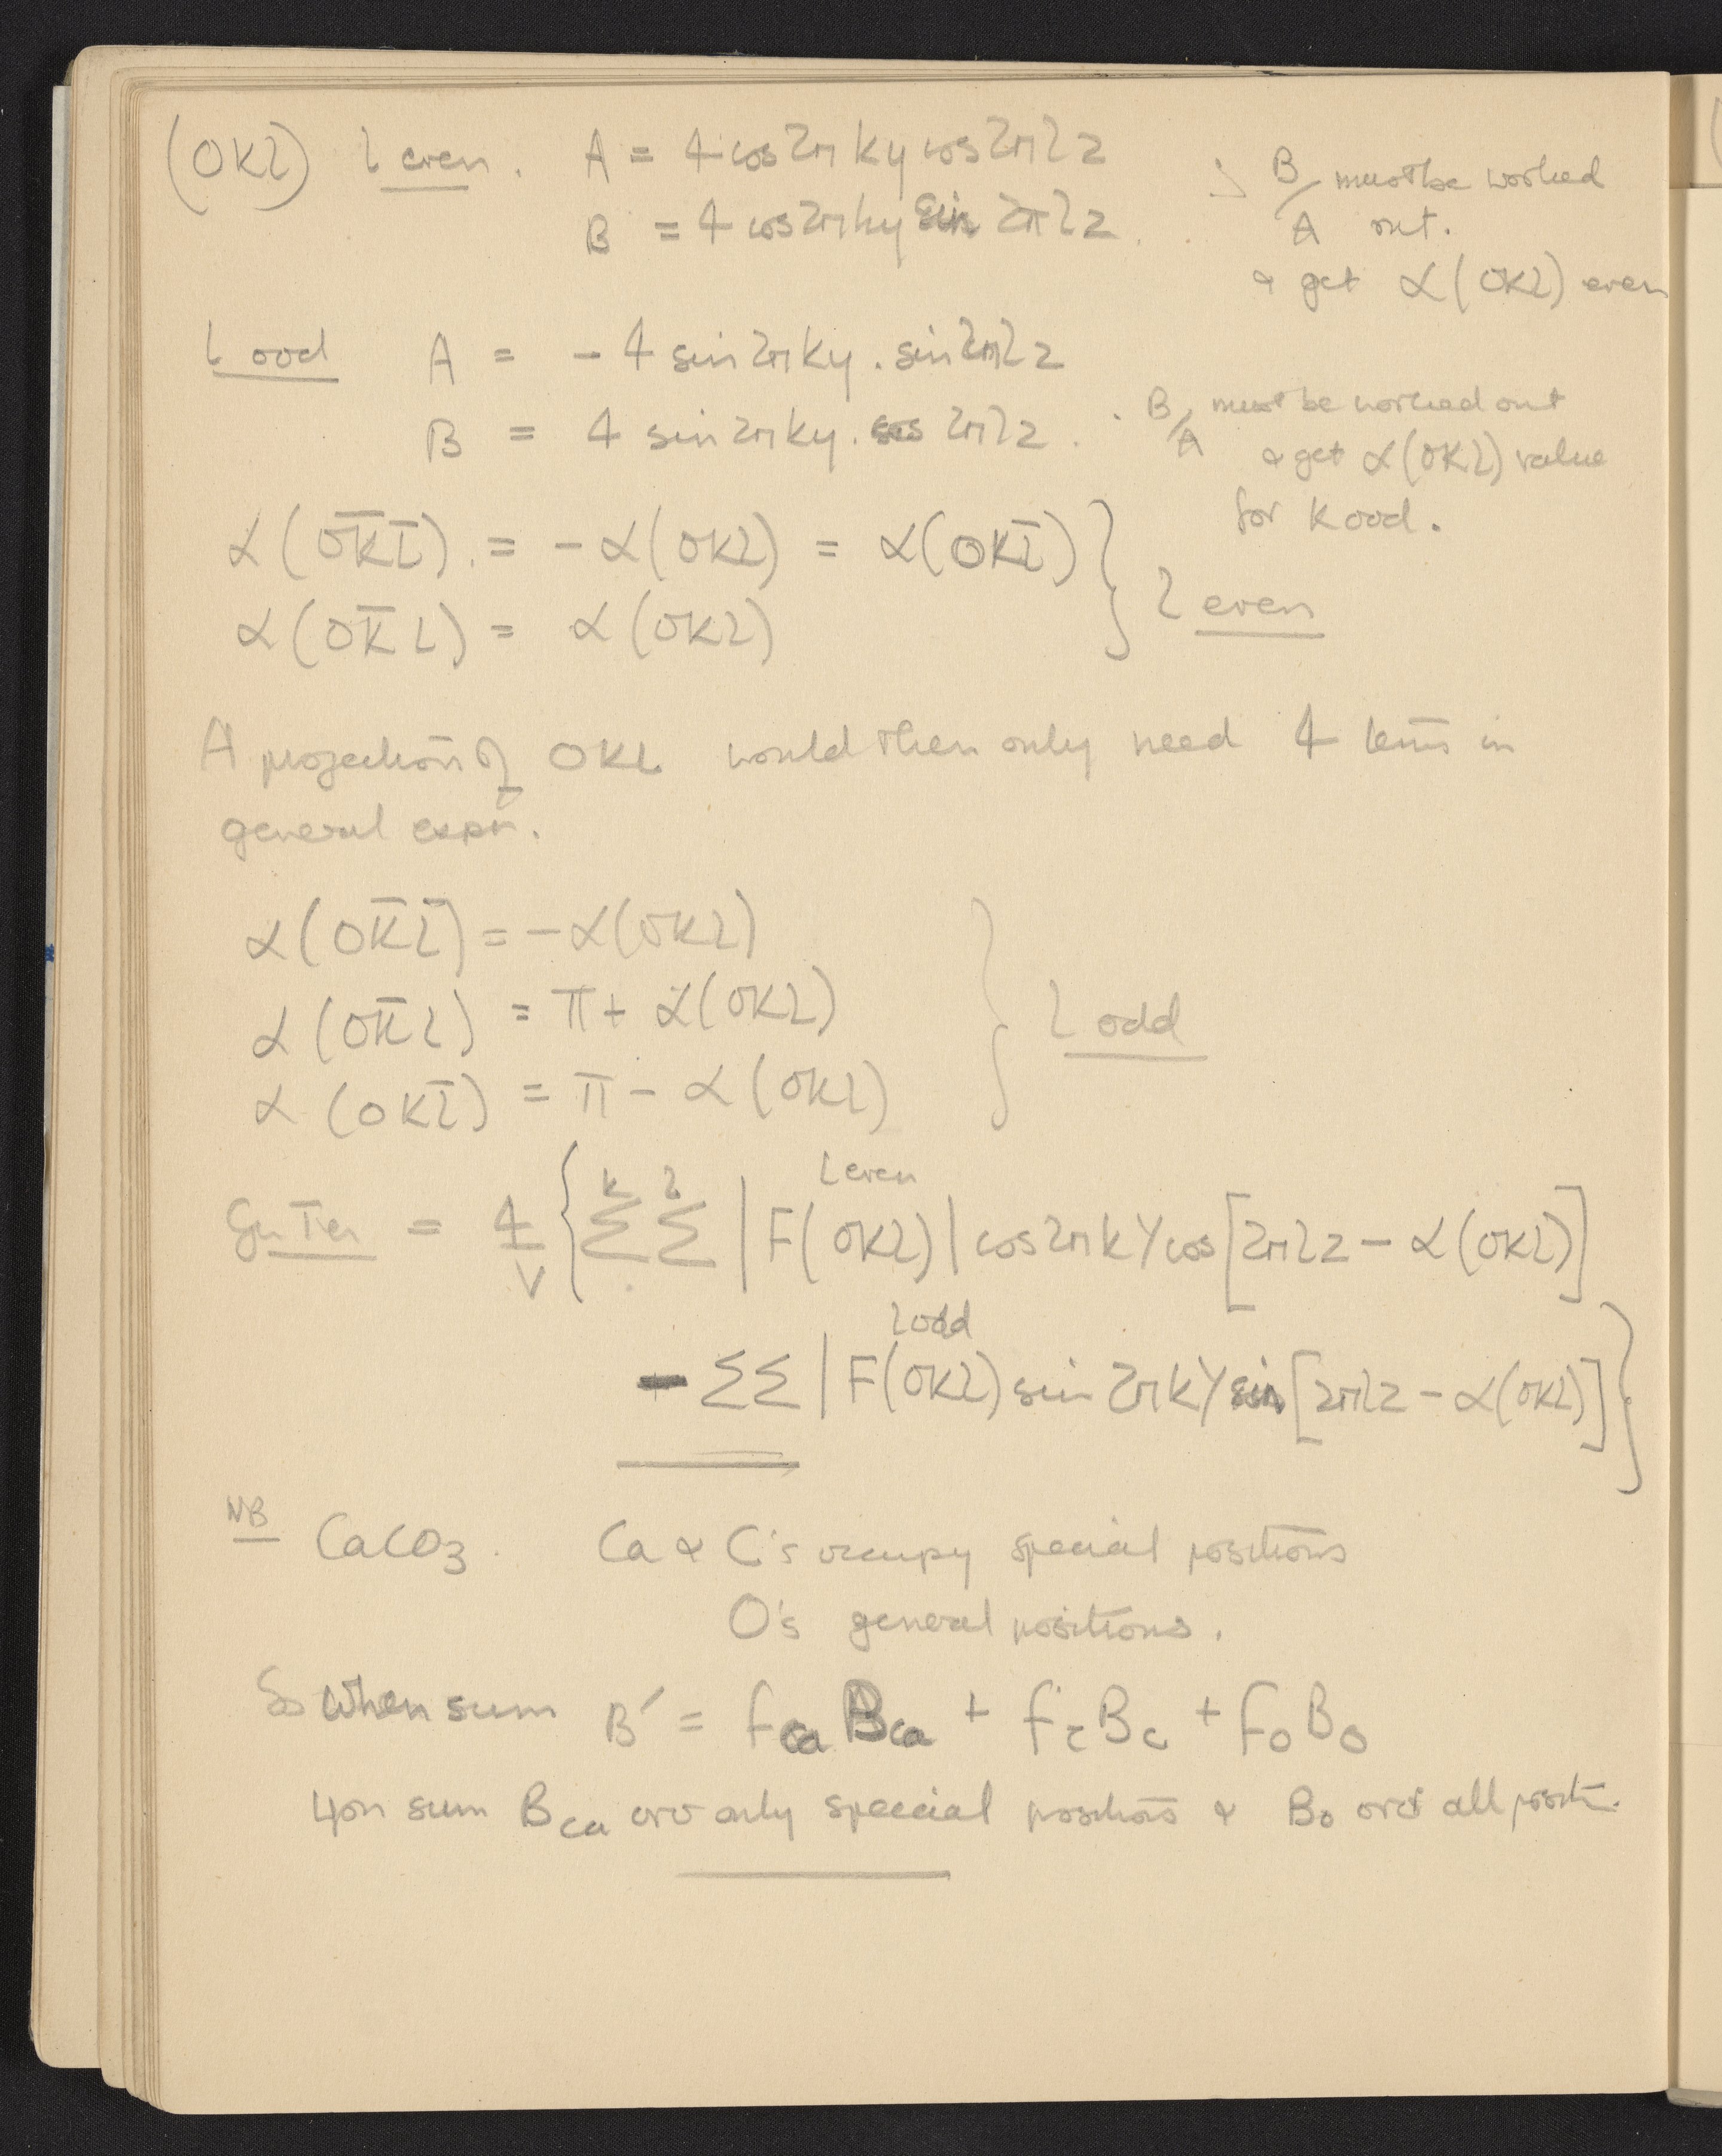 (OKl) l even. A = 4 cos 2π ky cos 2π l z
B = 4 cos 2π ky sin 2π l z.
B/A must be worked
out.
& get α(OKl) even
l odd A = - 4 sin 2π ky . sin 2π l z
B = 4 sin 2π ky . cos 2π l z.
B/A must be worked out
& get α(OKl) value
for k odd.
α(O̅K̅l̅) = -α(OKl) = α(OKl̅) }
α(OK̅l) = α(OKl) } l even
A projection of OKL would then only need 4 terms in
general expn.
α(OK̅l̅) = -α(OKl)
α(OK̅l) = π + α(OKl) } l odd
α(OKl̅) = π - α(OKl)
= 4/V { Σᵏ Σˡ |F(OKl)| cos 2π k Y cos [2π l z - α(OKl)]
l even
l odd
- ΣΣ |F(OKl) sin 2π k Y sin [2π l z - α(OKl)] }
NB CaCO₃. Ca & C's occupy special positions
O's general positions.
So when sum B′ = f_Ca B_Ca + f_c B_c + f_O B_O
you sum B_Ca over only special positions & B_O over all positn.